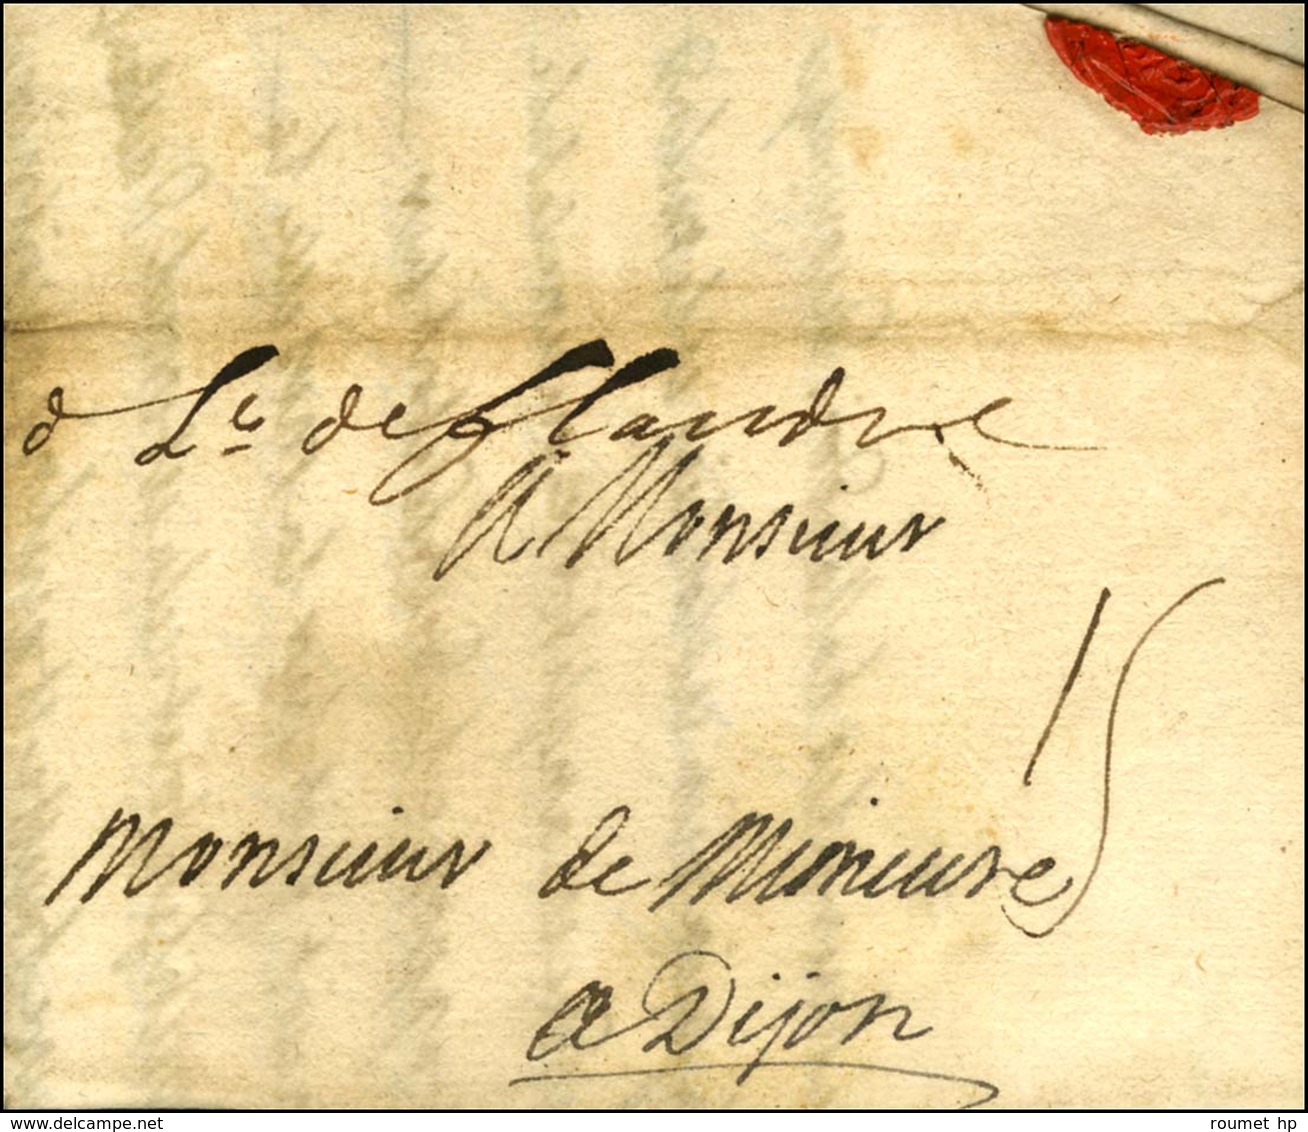 d Le de flandre
A Monsieur
15
Monsieur de Mimeure
a Dijon
delcampe.net
roumet hp